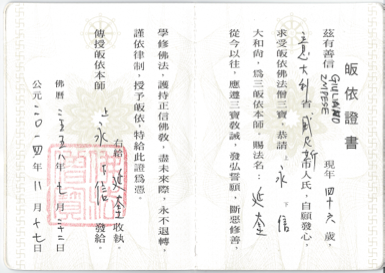 皈依證書
茲有善信 GIULIANO ZNIPESE 現年 四十六 歲，
意大利 省 威尼斯 市人氏，自願發心，
求受皈依佛法僧三寶，恭請 上永下信
大和尚，為三皈依本師。賜法名：延奎
從今以往，應遵三寶教誡，發弘誓願，斷惡修善，
學修佛法，護持正信佛教，盡未來際，永不退轉，
謹依律制，授予皈依，特給此證為憑。
右給 延奎 收執。
傳授皈依本師 上永下信 發給。
佛曆 二五五八 年 七 月 二十二 日
公元 二〇一四 年 八 月 十七 日